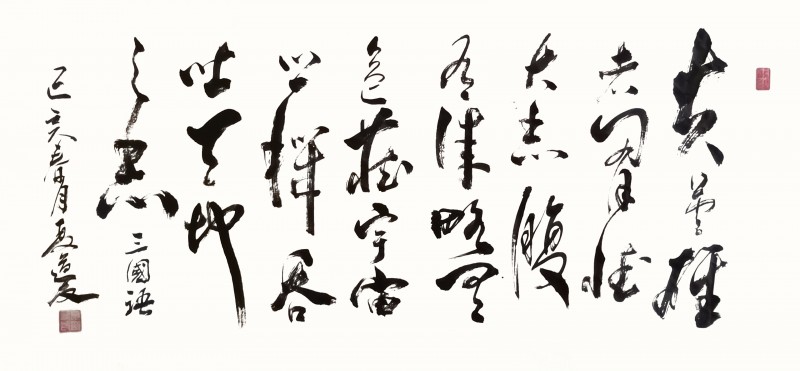 夫英雄
者胸懷
大志腹
有略
包藏宇宙
之機吞
吐天地
之志 三國語
己亥春月